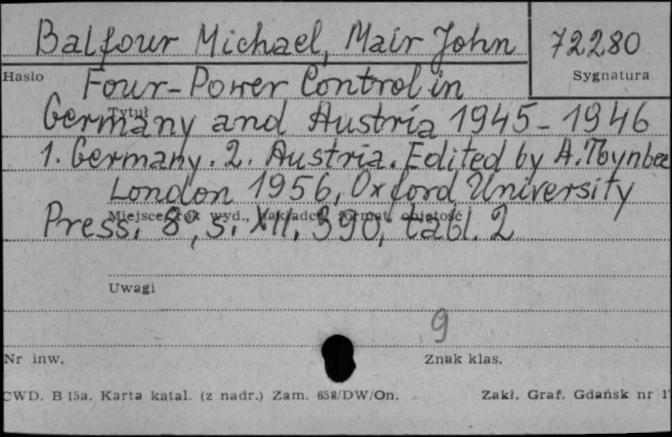 Balfour Michael, Mair John 72280
Hasło Sygnatura
Four-Power Control in
Tytuł
Germany and Austria 1945-1946
1. Germany. 2. Austria. Edited by A. Toynbee
London 1956, Oxford University
Miejsce, rok wyd., nakładca, format, objętość
Press. 8°, s. XII, 390, tabl. 2
Uwagi
9
Nr inw. Znak klas.
CWD. B 15a. Karta katal. (z nadr.) Zam. 658/DW/On. Zakł. Graf. Gdańsk nr